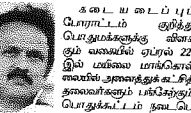 கடையடைப்புப்
போராட்டம் குறித்து
பொதுமக்களுக்கு விளக்
கும் வகையில் ஏப்ரல் 22
இல் மயிலை மாங்கொல்
லையில் அனைத்துக் கட்சித்
தலைவர்களும் பங்கேற்கும்
பொதுக்கூட்டம் நடைபெ